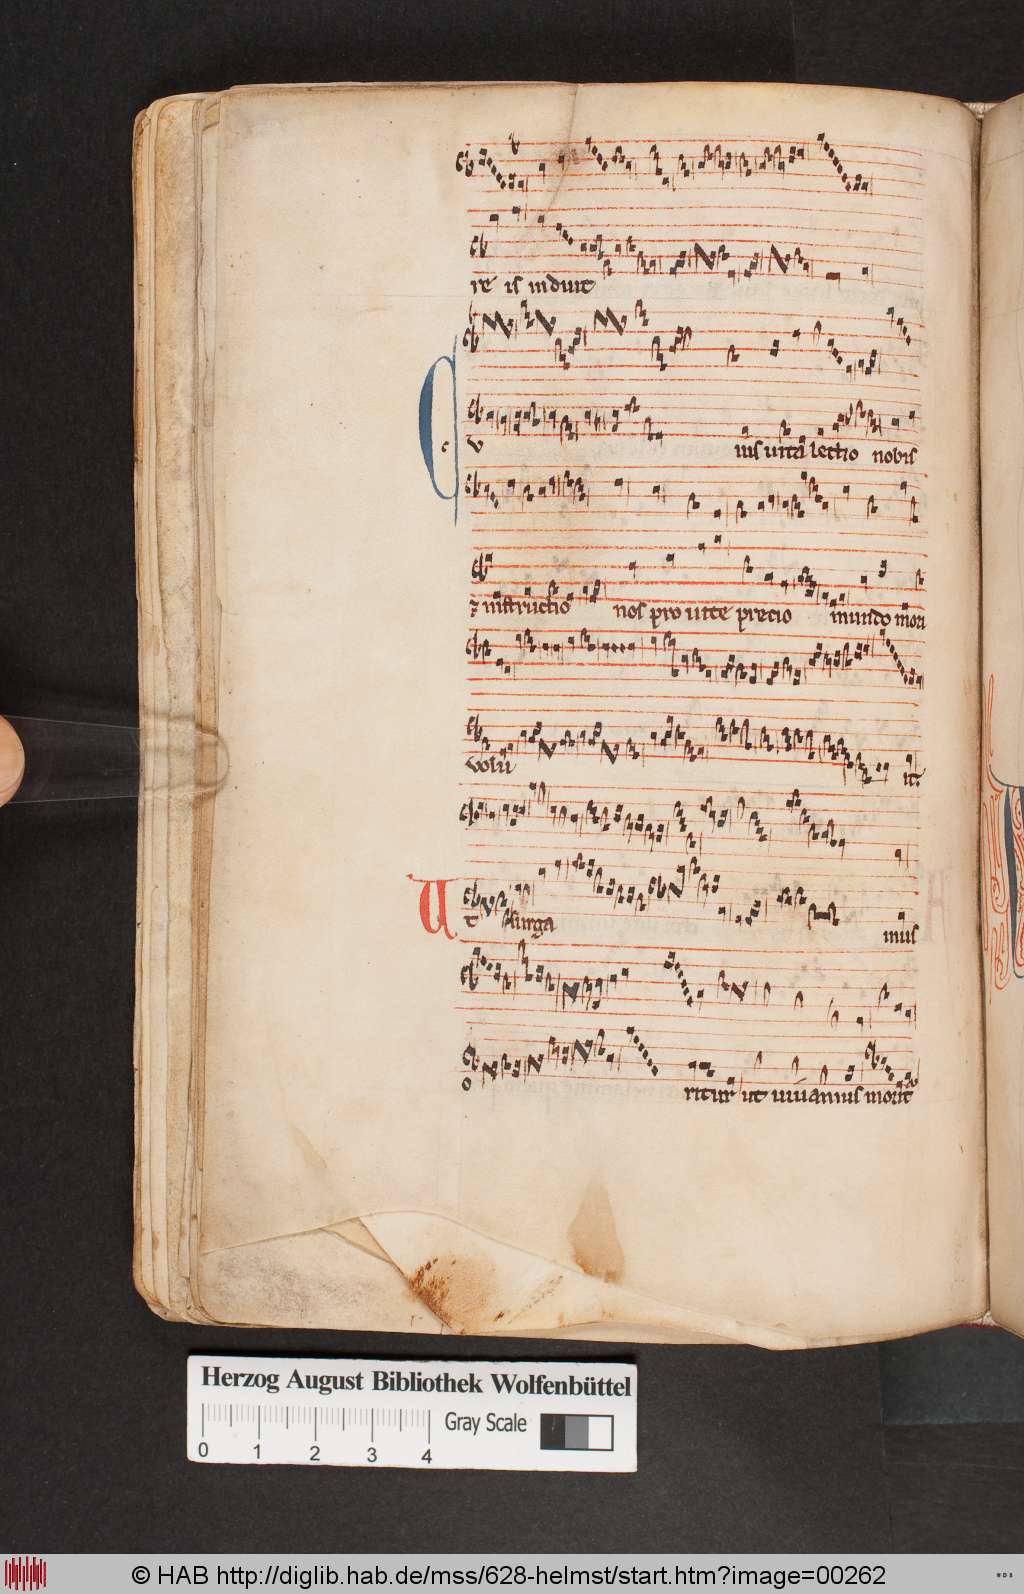 re is induit
C v ius vita lectio nobis
⁊ instructio nos pro vite precio mundo mori
volu it.
U t surga mus
o ritur ut vivamus morit
Herzog August Bibliothek Wolfenbüttel
Gray Scale
0 1 2 3 4
© HAB http://diglib.hab.de/mss/628-helmst/start.htm?image=00262